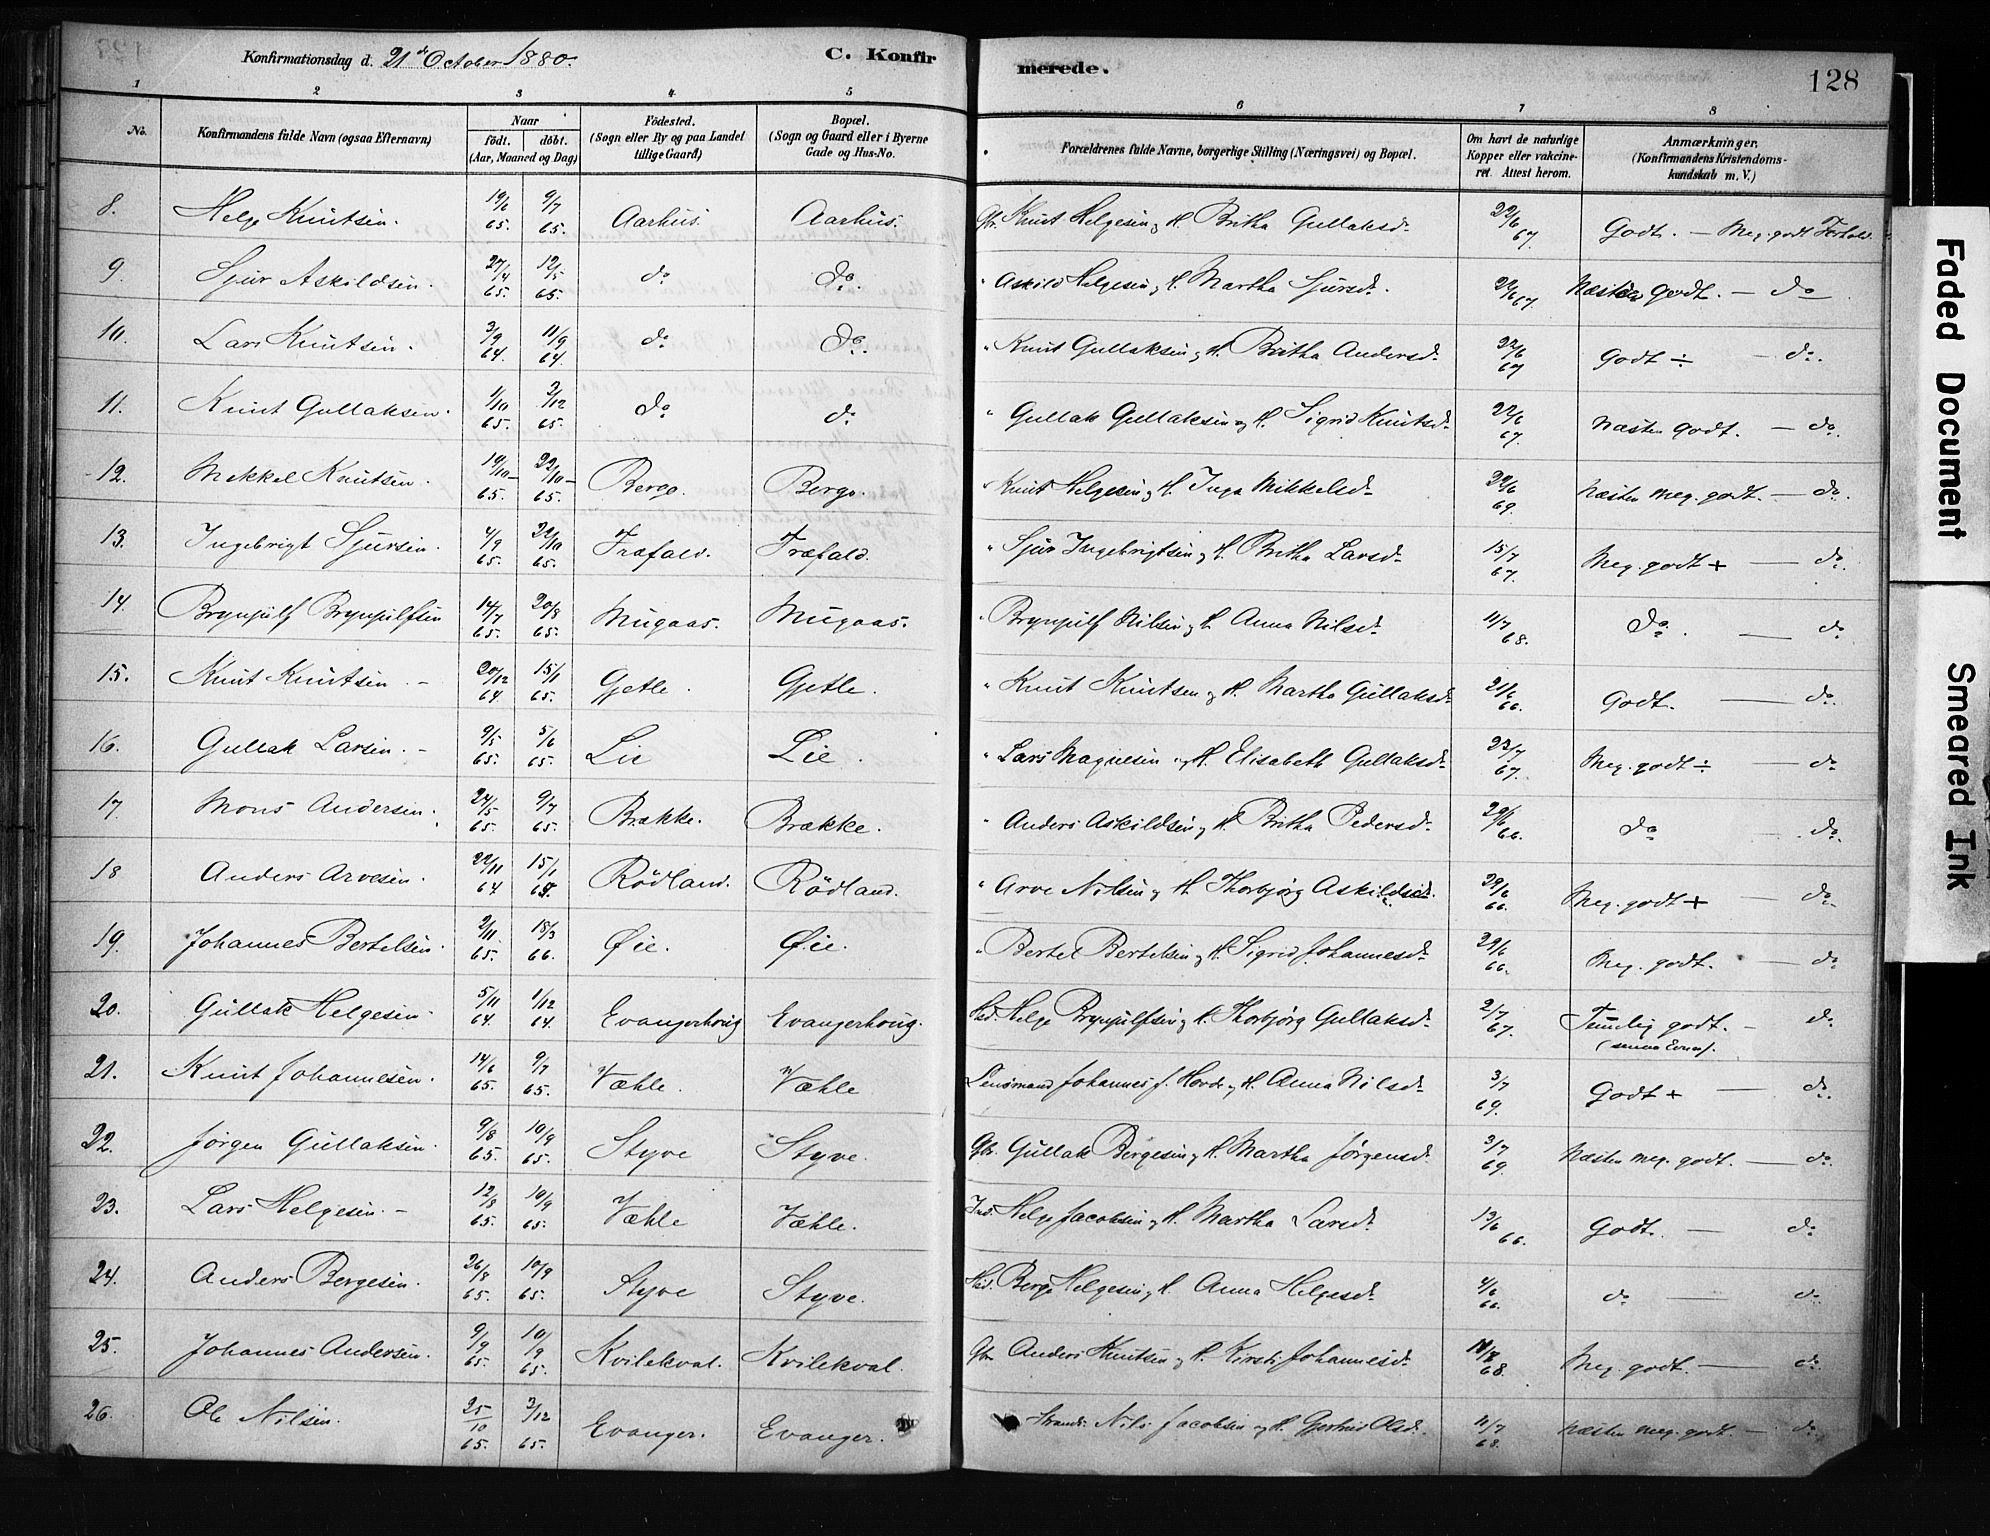 Konfirmationsdag d. 21de October 1880. C. Konfirmerede. 128
1 2 3 4 5 6 7 8
No. Konfirmandens fulde Navn (ogsaa Efternavn) Naar født. døbt. (Aar, Maaned og Dag) Fødested. (Sogn eller By og paa Landet tillige Gaard) Bopæl. (Sogn og Gaard eller i Byerne Gade og Hus-No. Forældrenes fulde Navne, borgerlige Stilling (Næringsvei) og Bopæl. Om havt de naturlige Kopper eller vakcineret. Attest herom. Anmærkninger. (Konfirmandens Kristendomskundskab m. V.)
8. Helge Knutsen. 19/6 65. 9/7 65. Aarhus. Aarhus. Gbr. Knut Helgesen & H. Britha Gullaksd. 22/6 67. Godt. — Meg. godt Forhold.
9. Sjur Askildsen. 27/4 65. 12/5 65. do do. " Askild Helgesen & H. Martha Sjursd. 22/6 67 Næsten godt. — do.
10. Lars Knutsen. 3/9 64. 11/9 64. do. do. " Knut Gullaksen & H. Britha Andersd. 22/6 67 Godt ÷ — do.
11. Knut Gullaksen. 1/10 65. 3/12 65. do do. " Gullak Gullaksen & H. Sigrid Knutsd. 22/6 67. Næsten godt. — do.
12. Mikkel Knutsen. 19/10 65. 22/10 65. Berge. Berge. " Knut Helgesen & H. Inga Mikkelsd. 22/6 69. Næsten meg. godt. — do.
13. Ingebrigt Sjursen. 4/9 65. 22/10 65. Træfald. Træfald. " Sjur Ingebrigtsen & H. Britha Larsd. 15/7 67. Meg. godt + — do.
14. Brynjulf Brynjulfsen 14/7 65. 20/8 65. Mugaas. Mugaas. " Brynjulf Nilsen & H. Anna Nilsd. 11/7 68. do. — do
15. Knut Knutsen. 20/12 64. 15/1 65. Gjetle. Gjetle. " Knut Knutsen & H. Martha Gullaksd. 21/6 66. Godt. — do.
16. Gullak Larsen. 9/5 65. 5/6 65. Lie Lie. " Lars Magnesen & H. Elisabeth Gullaksd. 23/7 67. Meg. godt ÷ — do
17. Mons Andersen. 24/5 65. 9/7 65. Brække. Brække. " Anders Askildsen & H. Britha Pedersd. 29/6 66. do — do.
18 Anders Arvesen. 22/11 64 15/1 65. Rödland. Rödland. " Arve Nilsen & H. Thorbjørg Askildsd. 29/6 66. Meg. godt + — do.
19. Johannes Bertelsen. 2/11 65. 18/3 66. Øie. Øie. " Bertel Bertelsen & H. Sigrid Johannesd. 29/6 66. Meg. godt. — do
20. Gullak Helgesen. 5/11 64. 1/12 64. Evangerhoug Evangerhoug. Hsd. Helge Brynjulfsen & H. Thorbjørg Gullaksd. 2/7 67. Temelig godt. — do.
(svage Evner).
21. Knut Johannesen. 14/6 65. 9/7 65. Væhle. Væhle Lensmand Johannes J. Horde & H. Anna Nilsd. 3/7 69. Godt + — do.
22. Jørgen Gullaksen. 9/8 65. 10/9 65. Styve Styve. Gbr. Gullak Bergesen & H. Martha Jørgensd. 3/7 69. Næsten meg. godt. — do.
23. Lars Helgesen. 12/8 65. 10/9 65. Væhle Væhle. Ind. Helge Jacobsen & H. Martha Larsd. 13/6 66. Godt. — do
24. Anders Bergesen. 26/8 65. 10/9 65. Styve Styve. Hsd. Berge Helgesen & H. Anna Helgesd. 4/6 66. do — do.
25. Johannes Andersen. 9/9 65. 10/9 65. Kvilekval. Kvilekval. Gbr Anders Knutsen & H. Kirsti Johannesd. 68. Meg. godt. — do
26. Ole Nilsen. 25/10 65. 3/12 65. Evanger. Evanger. Strands. Nils Jacobsen & H. Gjertrud Olsd. 11/7 68. Næsten meg. godt. — do
Faded Document
Smeared Ink